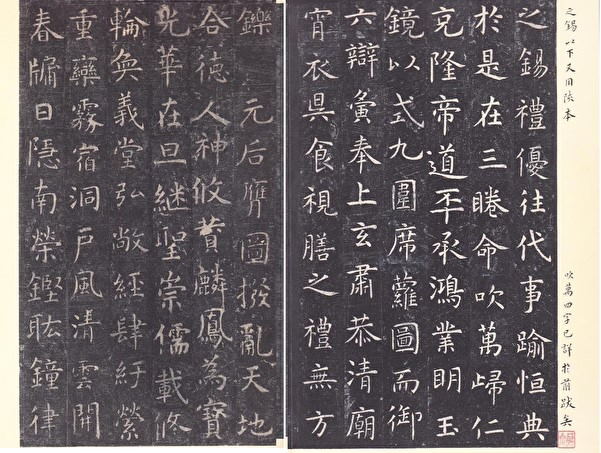 之錫以下又用陝本
吹萬四字已詳於前跋矣
之錫禮優往代事踰恒典
於是在三睠命吹萬歸仁
克隆帝道丕承鴻業明玉
鏡以式九圍席蘿圖而御
六辯寅奉上玄肅恭清廟
宵衣昃食視膳之禮無方
鑠 元后膺圖撥亂天地
合德人神攸贊麟鳳為寶
光華在旦繼聖崇儒載修
輪奐義堂弘敞經肆紆縈
重欒霧宿洞戶風清雲開
春牖日隱南榮鏗耾鐘律